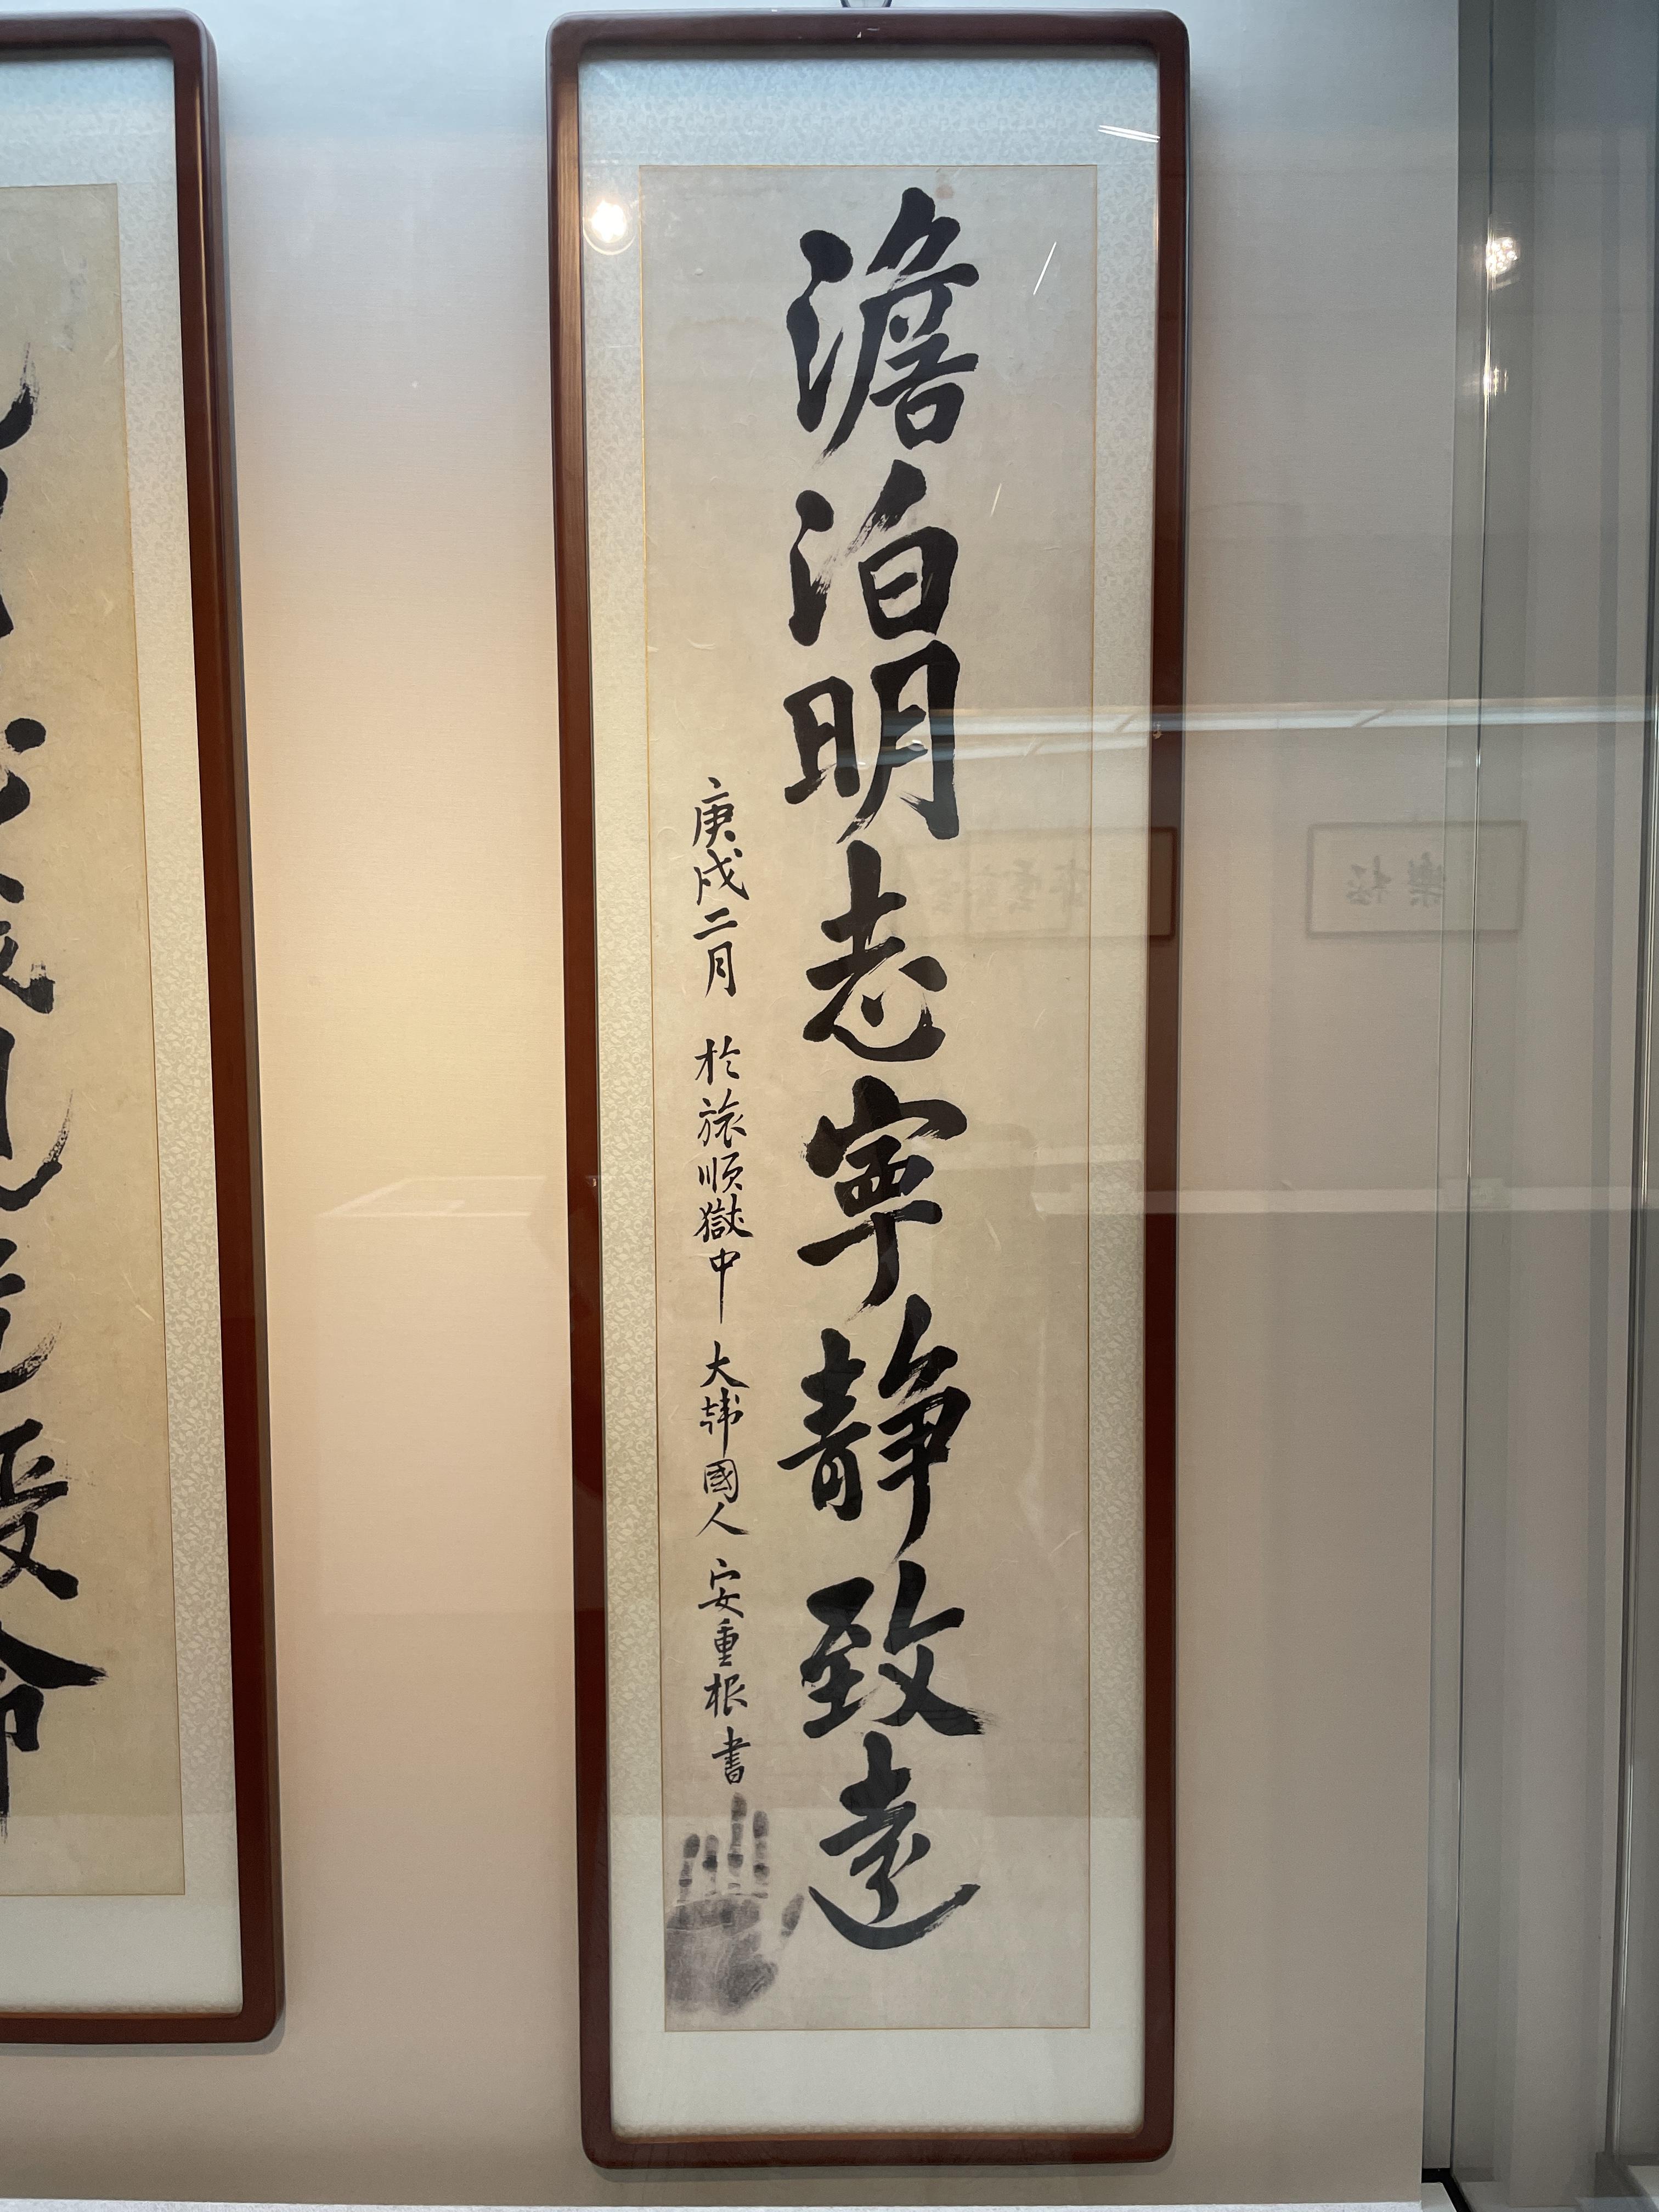 澹泊明志寧静致遠
庚戌二月 於旅順獄中 大韓國人 安重根 書